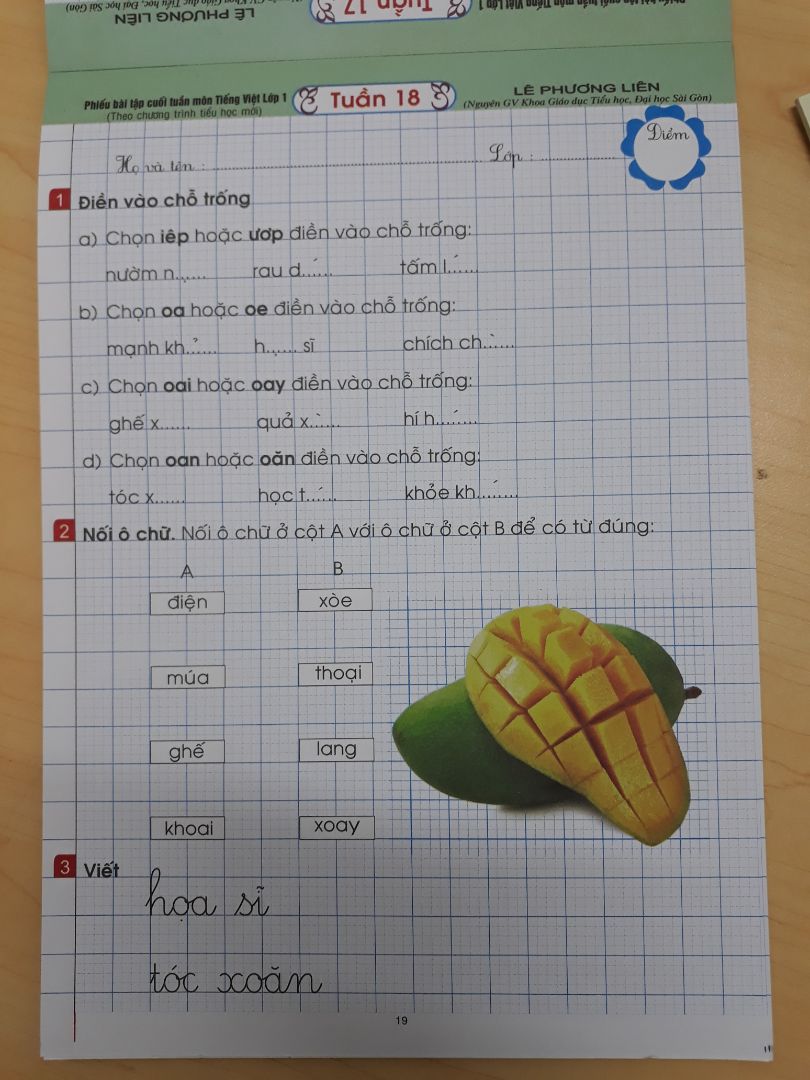 LÊ PHƯƠNG LIÊN
Tuần 17
Phiếu bài tập cuối tuần môn Tiếng Việt Lớp 1
(Theo chương trình tiểu học mới)
Tuần 18
LÊ PHƯƠNG LIÊN
(Nguyên GV Khoa Giáo dục Tiểu học, Đại học Sài Gòn)
Điểm
Họ và tên : ........................ Lớp : ............
1 Điền vào chỗ trống
a) Chọn iêp hoặc ươp điền vào chỗ trống:
nườm n.ׅ..... rau d..́.... tấm l..́....
b) Chọn oa hoặc oe điền vào chỗ trống:
mạnh kh..̉.... h.ׅ..... sĩ chích ch..̀....
c) Chọn oai hoặc oay điền vào chỗ trống:
ghế x...... quả x..̀.... hí h...́....
d) Chọn oan hoặc oăn điền vào chỗ trống:
tóc x...... học t..́.... khỏe kh...́.....
2 Nối ô chữ. Nối ô chữ ở cột A với ô chữ ở cột B để có từ đúng:
A B
điện xòe
múa thoại
ghế lang
khoai xoay
3 Viết
họa sĩ
tóc xoăn
19